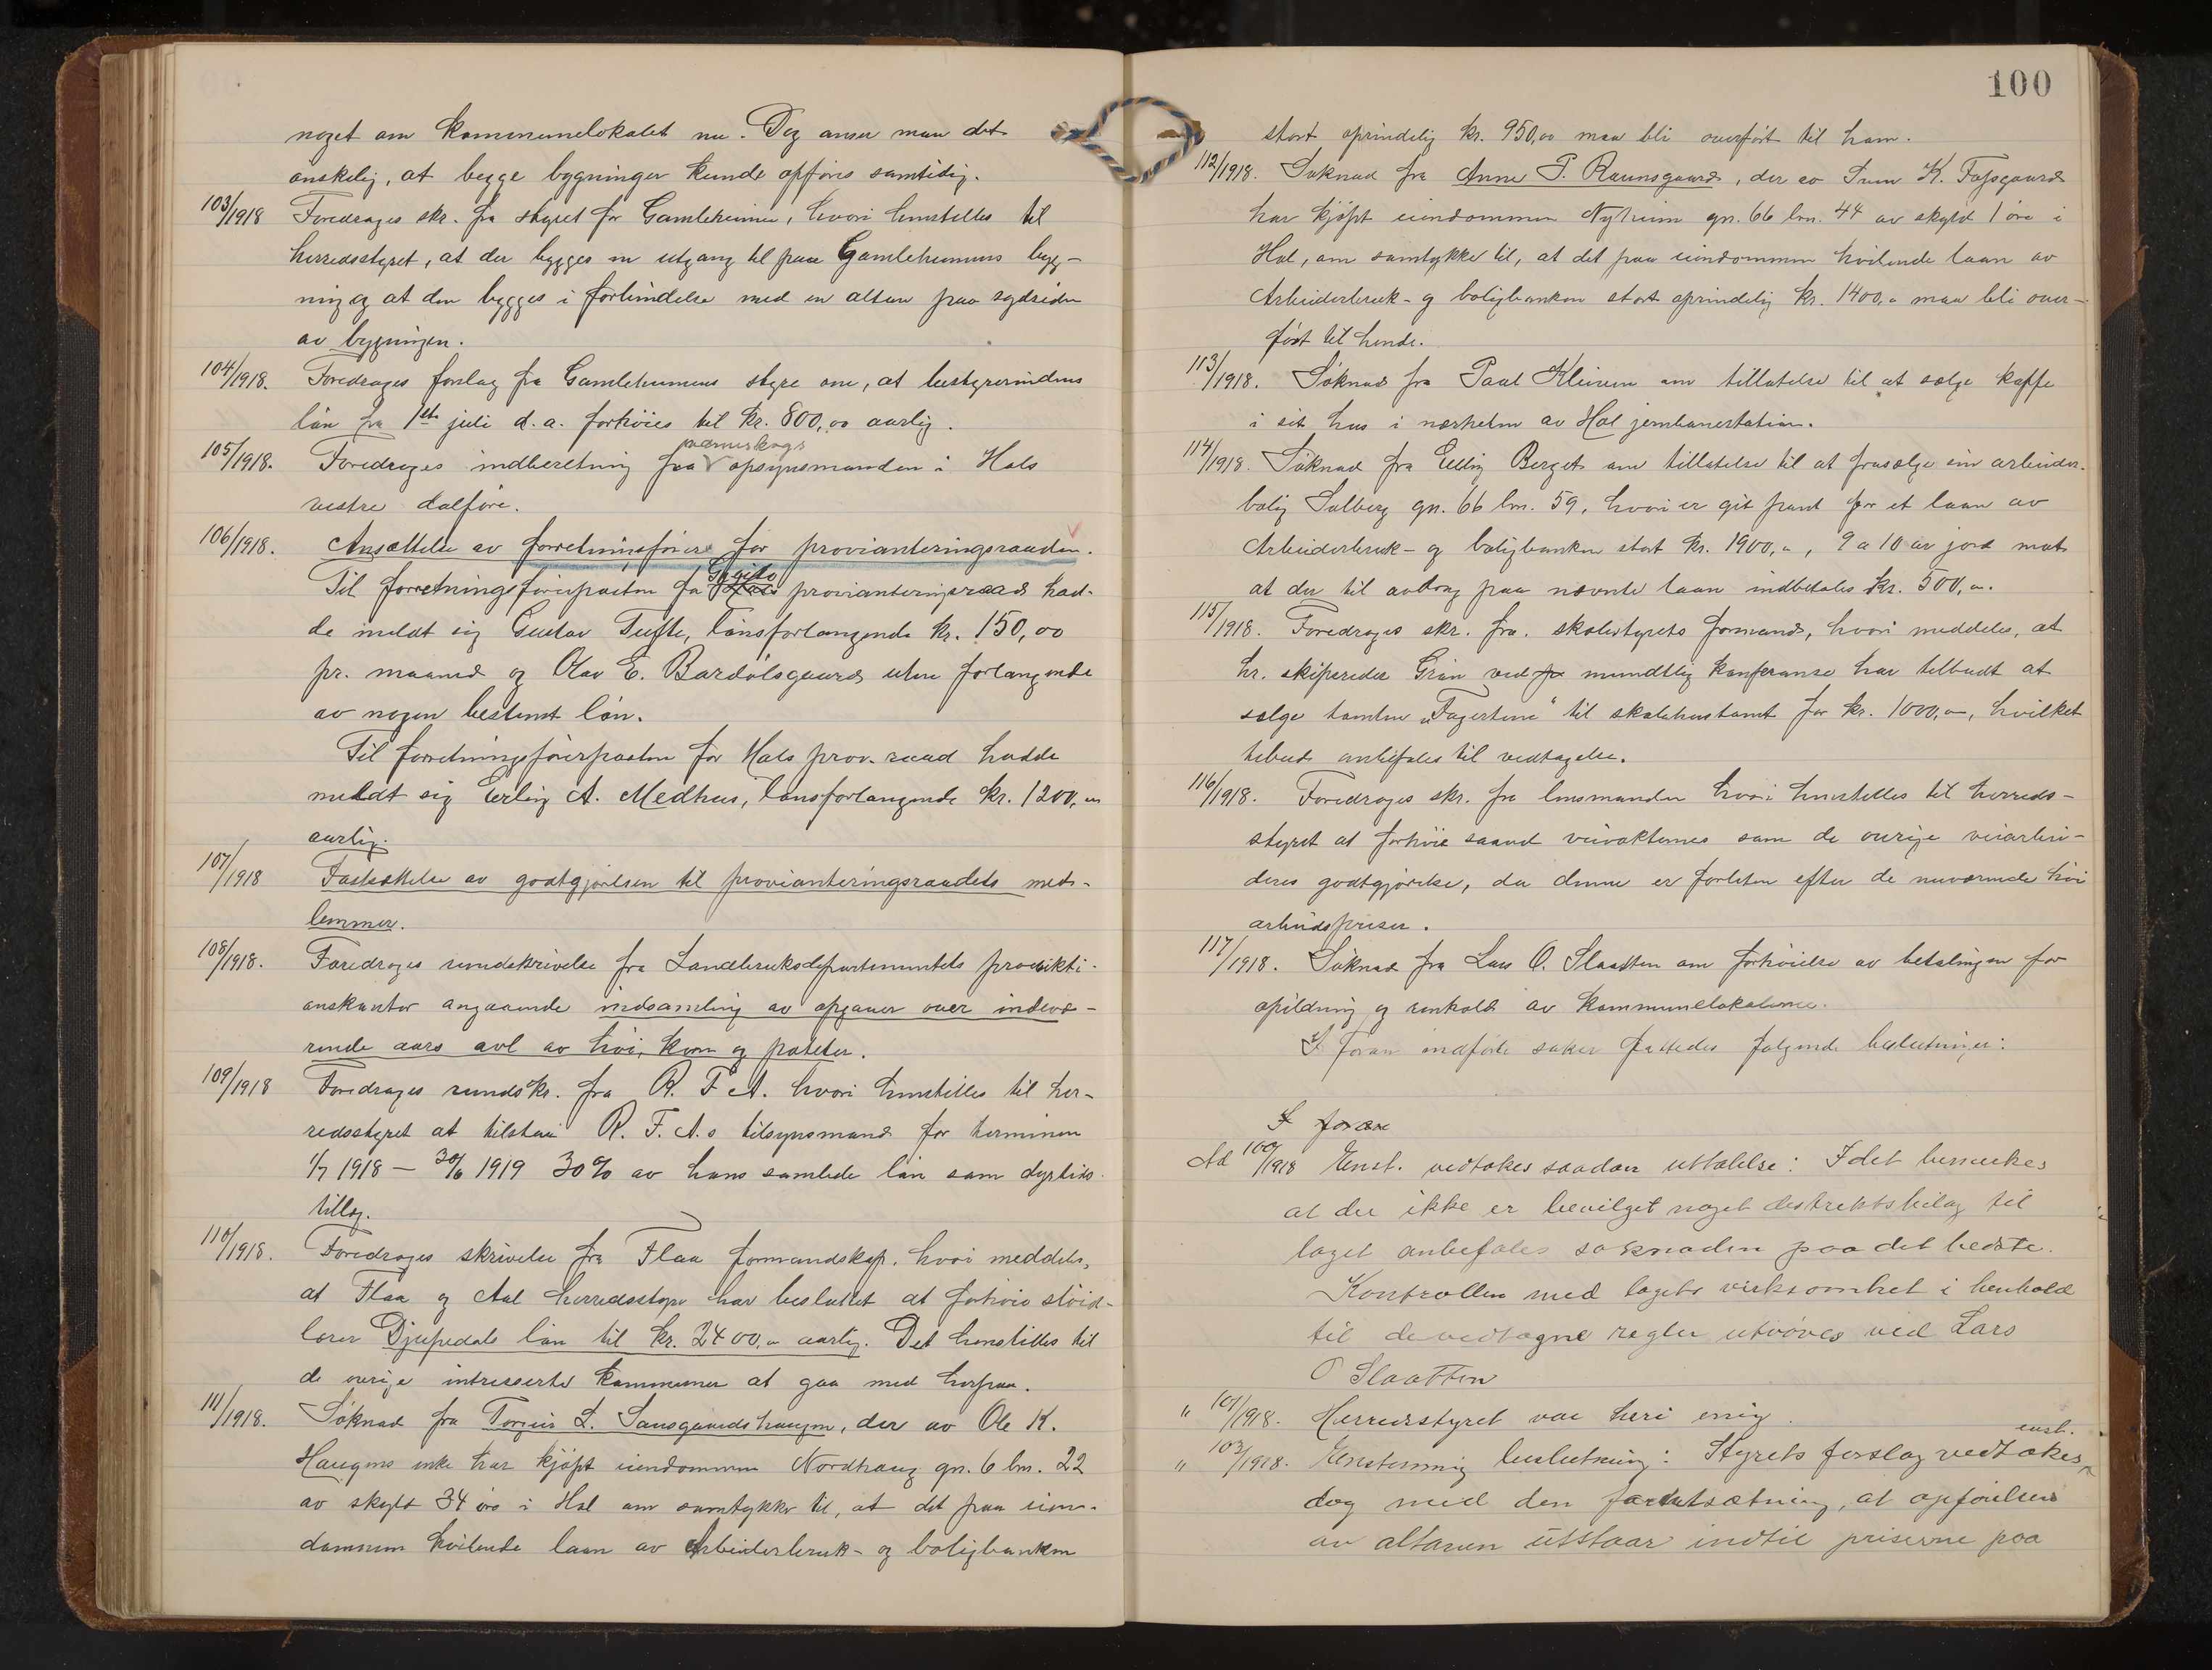 noget om kommunelokalet nu. Dog anser man det
ønskelig, at begge bygninger kunde opføres samtidig.
103/1918 Foredrages skr. fra styret for Gamleheimen, hvori henstilles til
herredsstyret, at der bygges en utgang til paa Gamleheimens byg-
ning og at den bygges i forbindelse med en altan paa sydsiden
av bygningen.
104/1918. Foredrages forslag fra Gamleheimens styre om, at bestyrerindens
løn fra 1ste juli d. a. forhøies til kr. 800,00 aarlig.
105/1918. Foredrages indberetning fra opsynsmanden i Hols
vestre dalføre.
106/1918. Ansættelse av forretningsførere for provianteringsraaden.
Til forretningsførerposten for provianteringsraad had-
de meldt sig Gustav Tufte, lønsforlangende kr. 150,00
pr. maaned og Olav E. Bardølsgaard uten forlangende
av nogen bestemt løn.
Til forretningsførerposten for Hols prov. raad hadde
meldt sig Erling A. Medhus, lønsforlangende kr. 1200,00
aarlig.
107/1918 Fastsættelse av godtgjørelsen til provianteringsraadets med-
lemmer.
108/1918. Foredrages rundskrivelse fra Landbruksdepartementets produkti-
onskontor angaaende indsamling av opgaver over indevæ-
rende aars avl av høi, korn og poteter.
109/1918 Foredrages rundskr. fra R. F. A. hvori henstilles til her-
redsstyret at tilstaa R. F. A.s tilsynsmand for terminen
1/7 1918 — 30/6 1919 30% av hans samlede løn som dyrtids-
tillæg.
110/1918. Foredrages skrivelse fra Flaa formandskap, hvori meddeles,
at Flaa og Aal herredsstyre har besluttet at forhøie sløid-
lærer Djupedals løn til kr. 2400,00 aarlig. Det henstilles til
de øvrige intresserte kommuner at gaa med herpaa.
111/1918. Søknad fra Torgeir L. Sansgaardshaugen, der av Ole K.
Haugens enke har kjøpt eiendommen Nordhaug gn. 6 bn. 22
av skyld 34 øre i Hol om samtykke til, at det paa eien-
dommen hvilende laan av Arbeiderbruk- og boligbanken
100
stort oprindelig kr. 950,00 maa bli overført til ham.
112/1918. Søknad fra Anne P. Raunsgaard, der av K.
har kjøpt eiendommen Nyheim gn. 66 bn. 44 av skyld 1 øre i
Hol, om samtykke til, at det paa eiendommen hvilende laan av
Arbeiderbruk- og boligbanken stort oprindelig kr. 1400,00 maa bli over-
ført til hende.
113/1918. Søknad fra Paul Kleiven om tillatelse til at sælge kaffe
i sit hus i nærheten av Hol jernbanestation.
114/1918. Søknad fra Elling Berget om tillatelse til at frasælge sin arbeider-
bolig Solberg gn. 66 bn. 59, hvori er git pant for et laan av
Arbeiderbruk- og boligbanken stort kr. 1900,00, 9 a 10 ar jord mot
at der til avdrag paa nævnte laan indbetales kr. 500,00.
115/1918. Foredrages skr. fra skolestyrets formand, hvori meddeles, at
hr. skipsreder Grøn ved mundtlig konferanse har tilbudt at
sælge tomten „Fagertun“ til skolehustomt for kr. 1000,00, hvilket
tilbud anbefales til vedtagelse.
116/1918. Foredrages skr. fra lensmanden hvori henstilles til herreds-
styret at forhøie saavel veivokternes som de øvrige veiarbei-
deres godtgjørelse, da denne er forliten efter de nuværende høie
arbeidspriser.
117/1918. Søknad fra Lars O. Slaatten om forhøielse av betalingen for
opildning og renhold av kommunelokalerne.
I foran indførte saker fattedes følgende beslutninger:
I foran
Ad 100/1918 Enst. vedtokes saadan uttalelse: Idet bemerkes
at der ikke er bevilget noget distriktsbidrag til
laget anbefales søknaden paa det bedste.
Kontrollen med lagets virksomhet i henhold
til de vedtagne regler utøves ved Lars
O Slaatten
" 101/1918. Herredsstyret var heri enig.
" 103/1918. Enstemmig beslutning: Styrets forslag vedtokes enst.
dog med den forutsætning, at opførelsen
av altanen utstaar indtil priserne paa